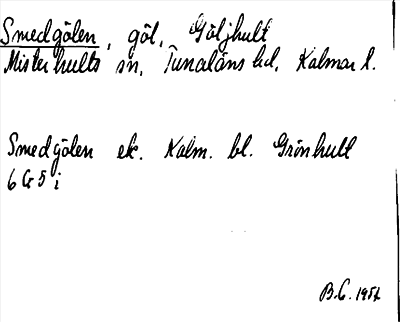 Smedgölen, göl, Göljhult
Misterhults sn, Tunaläns hd, Kalmar l.
Smedgölen ek. Kalm. bl. Grönhult
6 G 5 i
B.C. 1957